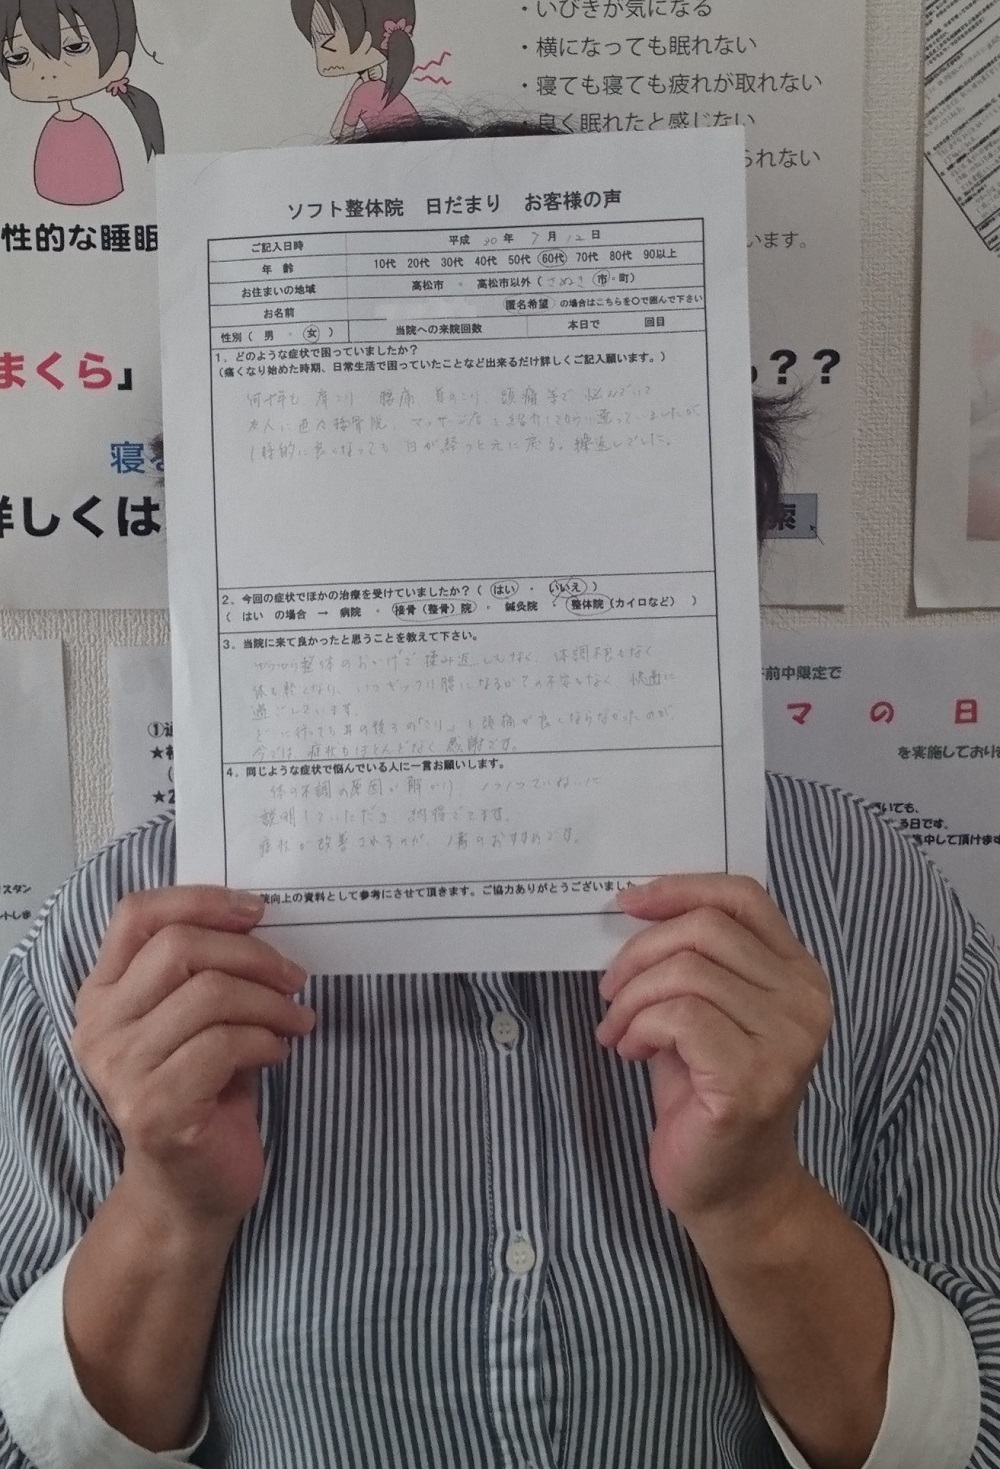 ・いびきが気になる
・横になっても眠れない
・寝ても寝ても疲れが取れない
・良く眠れたと感じない
られない
性的な睡眠
います。
まくら」
？？
寝
詳しくは
索
ソフト整体院 日だまり お客様の声
ご記入日時 平成 30 年 7 月 12 日
年 齢 10代 20代 30代 40代 50代 60代 70代 80代 90以上
お住まいの地域 高松市 ・ 高松市以外（さぬき 市・町）
お名前 匿名希望 の場合はこちらを〇で囲んで下さい
性別（ 男 ・ 女 ） 当院への来院回数 本日で 回目
1．どのような症状で困っていましたか？
（痛くなり始めた時期、日常生活で困っていたことなど出来るだけ詳しくご記入願います。）
何十年も 肩こり 腰痛 首のこり、頭痛等で 悩んでいて
友人に 接骨院、マッサージ店を紹介してもらい通っていましたが
1時的に良くなっても、日が経つと元に戻る。繰返しでした。
2．今回の症状でほかの治療を受けていましたか？（ はい ・ いいえ ）
（ はい の場合 → 病院 ・ 接骨（整骨）院 ・ 鍼灸院 ・ 整体院（カイロなど） ）
3．当院に来て良かったと思うことを教えて下さい。
整体のおかげで 揉み返しもなく、体調不良もなく
体も軽くなり、いつギックリ腰になるか？の不安もなく 快適に
過ごしています。
どこに行っても耳の後ろの「こり」と頭痛が良くならなかったのが
今では、症状もほとんどなく感謝です。
4．同じような症状で悩んでいる人に一言お願いします。
体の不調の原因が解かり、1つ1つていねいに
説明していただき 納得できます。
症状が改善されるのが、1番のおすすめです。
院向上の資料として参考にさせて頂きます。ご協力ありがとうございました
午前中限定で
マ の 日
を実施しており
いても、
る日です。
集中して頂けます
①
★
★2
スタン
ントしま